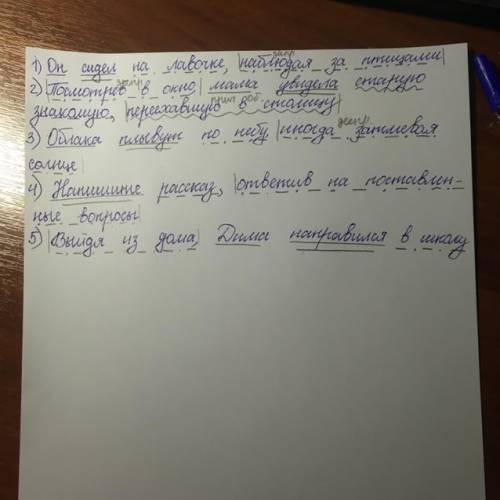 деепр.
1) Он сидел на лавочке, |наблюдая за птицами|
деепр.
2) |Посмотрев в окно| мама увидела старую
прич. об.
знакомую, |переехавшую в столицу|
деепр.
3) Облака плывут по небу |иногда затмевая
солнце|
4) Напишите рассказ, |ответив на поставлен-
ные вопросы|
5) |Выйдя из дома| Дима направился в школу